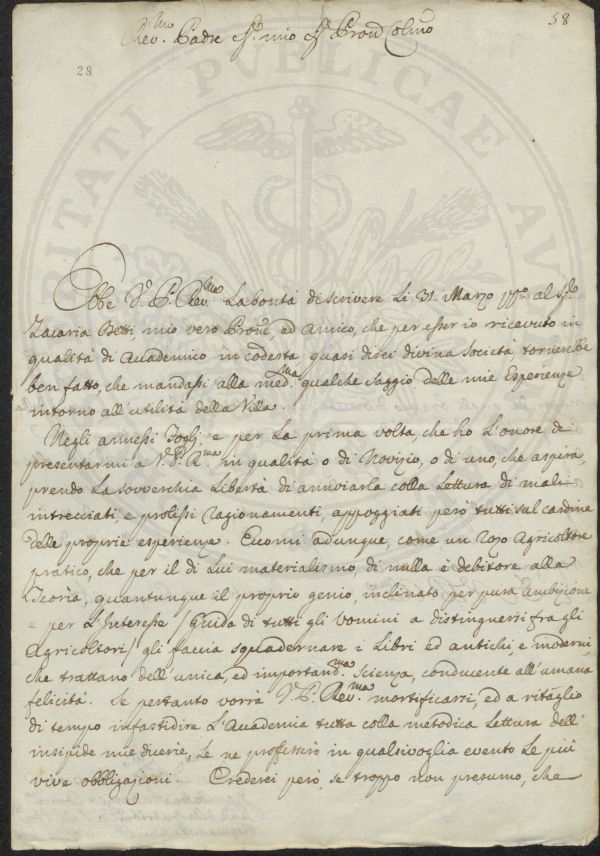 58
Rev.mo Padre Sr. mio Sr. Pron Colmo
28
PUBLICAE
Ebbe V. P. Rev.ma La bontà di scrivere Li 31. Marzo ppo al Sr.
Zacaria Betti, mio vero Prone, ed Amico, che per esser io ricevuto in
qualità di Academico in codesta quasi direi divina Società, tornerebbe
ben fatto, che mandassi alla med.ma qualche saggio delle mie Esperienze
intorno all'utilità della Villa.
Negli annessi Fogli, e per La prima volta, che ho L'onore di
presentarmi a V. P. R.ma in qualità o di Novizio, o di uno, che aspira,
prendo La sovverchia Libertà di annoiarla colla Lettura di mali
intrecciati, e prolissi ragionamenti, appoggiati però tutti sul cardine
delle proprie esperienze. Eccomi adunque, come un rozo Agricoltore
pratico, che per il di Lui materialismo, di nulla è debitore alla
Teoria, quantunque il proprio genio, inclinato per pura Ambizione
e per L'Interesse / Guida di tutti gli uomini a distinguersi fra gli
Agricoltori / gli faccia squadernare i Libri ed antichi, e moderni,
che trattano dell'unica, ed importand.ma scienza, conducente all'umana
felicità. Se pertanto vorrà V. P. Rev.ma mortificarsi, ed a ritaglio
di tempo infastidire L'Academia tutta colla metodica Lettura dell'
insipide mie dicerie, Le ne professerò in qualsivoglia evento Le più
vive obbligazioni. Crederei però, se troppo non presumo, che